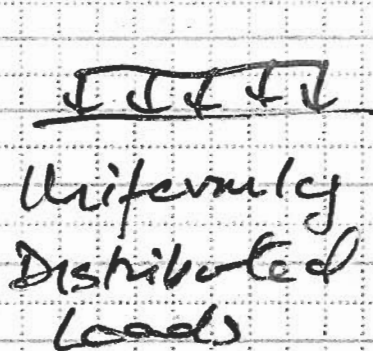 Uniformly
Distributed
Loads